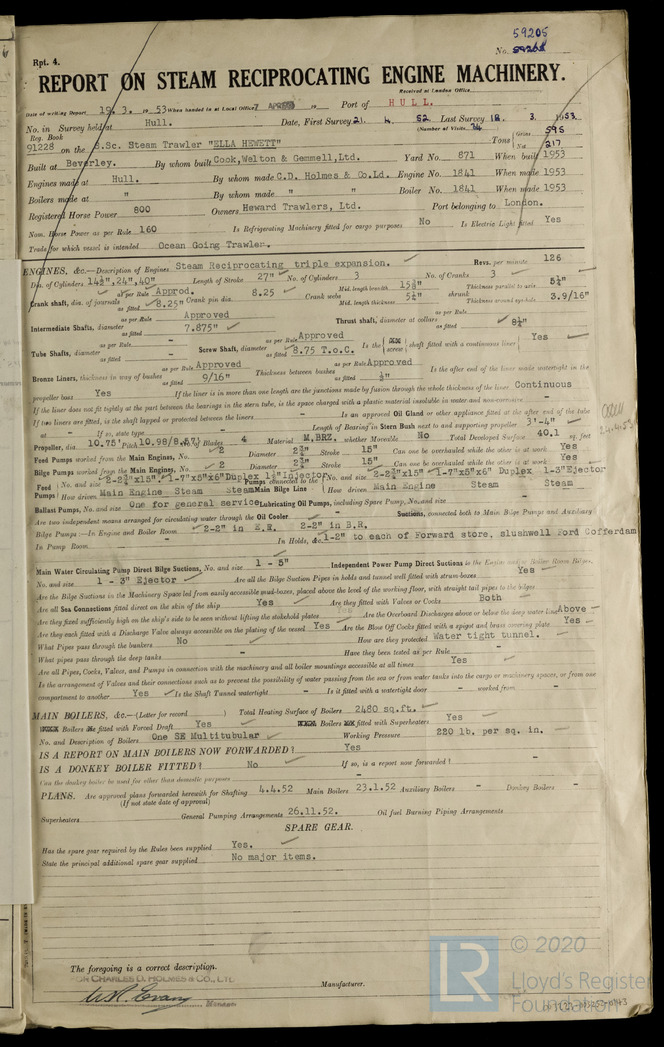 59205
Rpt. 4.
No. 59205
REPORT ON STEAM RECIPROCATING ENGINE MACHINERY.
Received at London Office
Date of writing Report 19. 3. 1953 When handed in at Local Office 7 APR 19 Port of HULL.
No. in Survey held at Hull. Date, First Survey 21. 4. 52 Last Survey 18. 3. 1953.
Reg. Book (Number of Visits 34) Gross 595
91228 on the S.Sc. Steam Trawler "ELLA HEWETT" Tons Net 217
Built at Beverley. By whom built Cook, Welton & Gemmell, Ltd. Yard No. 871 When built 1953
Engines made at Hull. By whom made C.D. Holmes & Co. Ld. Engine No. 1841 When made 1953
Boilers made at " By whom made " " Boiler No. 1841 When made 1953
Registered Horse Power 800 Owners Heward Trawlers, Ltd. Port belonging to London.
Nom. Horse Power as per Rule 160 Is Refrigerating Machinery fitted for cargo purposes No Is Electric Light fitted Yes
Trade for which vessel is intended Ocean Going Trawler.
ENGINES, &c.—Description of Engines Steam Reciprocating triple expansion. Revs. per minute 126
Dia. of Cylinders 14½",24",40" Length of Stroke 27" No. of Cylinders 3 No. of Cranks 3
Crank shaft, dia. of journals as per Rule Approd. as fitted 8.25" Crank pin dia. 8.25 Crank webs Mid. length breadth 15⅝" Mid. length thickness 5¼" shrunk Thickness parallel to axis 5¼" Thickness around eye hole 3.9/16"
Intermediate Shafts, diameter as per Rule Approved as fitted 7.875" Thrust shaft, diameter at collars as per Rule as fitted 8½"
Tube Shafts, diameter as per Rule as fitted Screw Shaft, diameter as per Rule Approved as fitted 8.75 T.o.C. Is the screw shaft fitted with a continuous liner Yes
Bronze Liners, thickness in way of bushes as per Rule Approved as fitted 9/16" Thickness between bushes as per Rule Approved as fitted ½" Is the after end of the liner made watertight in the
propeller boss Yes If the liner is in more than one length are the junctions made by fusion through the whole thickness of the liner Continuous
If the liner does not fit tightly at the part between the bearings in the stern tube, is the space charged with a plastic material insoluble in water and non-corrosive -
If two liners are fitted, is the shaft lapped or protected between the liners - Is an approved Oil Gland or other appliance fitted at the after end of the tube
at - If so, state type - Length of Bearing in Stern Bush next to and supporting propeller 3'-4"
Propeller, dia. 10.75' Pitch 10.98/8.67 No. of Blades 4 Material M.BRZ. whether Moveable No Total Developed Surface 40.1 sq. feet
Feed Pumps worked from the Main Engines, No. 2 Diameter 2¾" Stroke 15" Can one be overhauled while the other is at work Yes
Bilge Pumps worked from the Main Engines, No. 2 Diameter 2¾" Stroke 15" Can one be overhauled while the other is at work Yes
Feed Pumps No. and size 2-2¾"x15" 1-7"x5"x6"Duplex 1½"Injector Pumps connected to the Main Bilge Line No. and size 2-2¾"x15" 1-7"x5"x6" Duplex 1-3"Ejector
How driven Main Engine Steam Steam How driven Main Engine Steam Steam
Ballast Pumps, No. and size One for general service Lubricating Oil Pumps, including Spare Pump, No. and size -
Are two independent means arranged for circulating water through the Oil Cooler - Suctions, connected both to Main Bilge Pumps and Auxiliary
Bilge Pumps:—In Engine and Boiler Room 2-2" in E.R. 2-2" in B.R.
In Pump Room - In Holds, &c. 1-2" to each of Forward store, slushwell Ford Cofferdam
Main Water Circulating Pump Direct Bilge Suctions, No. and size 1 - 5" Independent Power Pump Direct Suctions to the Engine and/or Boiler Room Bilges,
No. and size 1 - 3" Ejector Are all the Bilge Suction Pipes in holds and tunnel well fitted with strum-boxes Yes
Are the Bilge Suctions in the Machinery Space led from easily accessible mud-boxes, placed above the level of the working floor, with straight tail pipes to the bilges
Are all Sea Connections fitted direct on the skin of the ship Yes Are they fitted with Valves or Cocks Both
Are they fixed sufficiently high on the ship's side to be seen without lifting the stokehold plates Yes Are the Overboard Discharges above or below the deep water line Above
Are they each fitted with a Discharge Valve always accessible on the plating of the vessel Yes Are the Blow Off Cocks fitted with a spigot and brass covering plate Yes
What Pipes pass through the bunkers No How are they protected Water tight tunnel.
What pipes pass through the deep tanks - Have they been tested as per Rule -
Are all Pipes, Cocks, Valves, and Pumps in connection with the machinery and all boiler mountings accessible at all times Yes
Is the arrangement of Valves and their connections such as to prevent the possibility of water passing from the sea or from water tanks into the cargo or machinery spaces, or from one
compartment to another Yes Is the Shaft Tunnel watertight - Is it fitted with a watertight door - worked from -
MAIN BOILERS, &c.—(Letter for record ) Total Heating Surface of Boilers 2480 sq.ft.
Boilers fitted with Forced Draft Yes Boilers fitted with Superheaters Yes
No. and Description of Boilers One SE Multitubular Working Pressure 220 lb. per sq. in.
IS A REPORT ON MAIN BOILERS NOW FORWARDED? Yes
IS A DONKEY BOILER FITTED? No If so, is a report now forwarded? -
Can the donkey boiler be used for other than domestic purposes -
PLANS. Are approved plans forwarded herewith for Shafting 4.4.52 Main Boilers 23.1.52 Auxiliary Boilers - Donkey Boilers -
(If not state date of approval)
Superheaters General Pumping Arrangements 26.11.52. Oil fuel Burning Piping Arrangements
SPARE GEAR.
Has the spare gear required by the Rules been supplied Yes.
State the principal additional spare gear supplied No major items.
The foregoing is a correct description.
FOR CHARLES D. HOLMES & CO., LTD.
Manufacturer.
LR © 2020
Lloyd's Register
Foundation